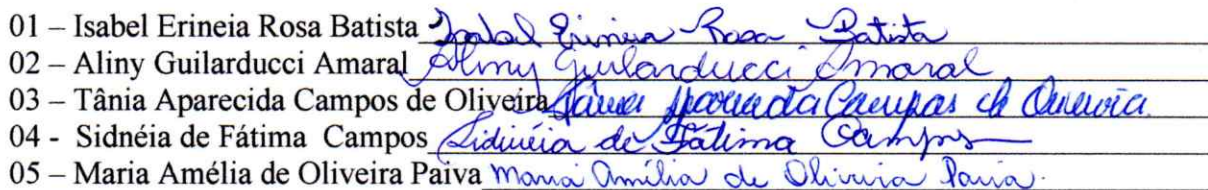 01 – Isabel Erineia Rosa Batista Isabel Erineia Rosa Batista
02 – Aliny Guilarducci Amaral Aliny Guilarducci Amaral
03 – Tânia Aparecida Campos de Oliveira Tânia Aparecida Campos de Oliveira
04 - Sidnéia de Fátima Campos Sidinéia de Fátima Campos
05 – Maria Amélia de Oliveira Paiva Maria Amélia de Oliveira Paiva